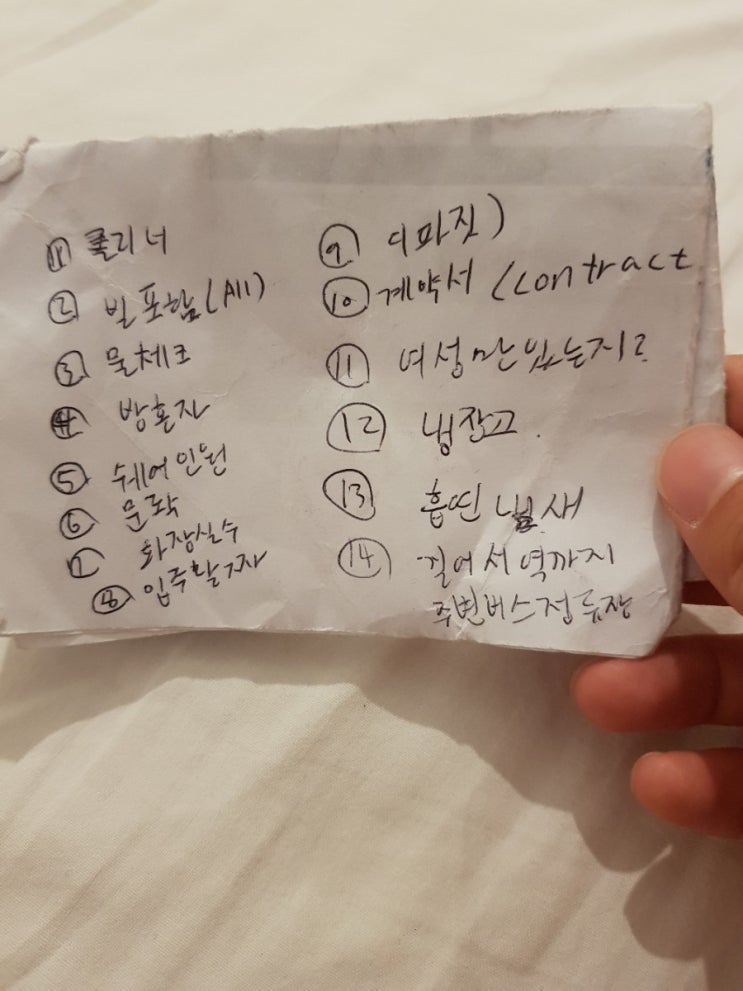 ① 클리너
② 빌포함(All)
③ 물체크
④ 방혼자
⑤ 쉐어인원
⑥ 문락
⑦ 화장실수
⑧ 입주날짜
⑨ 디파짓)
⑩ 계약서 (contract
⑪ 여성만있는지?
⑫ 냉장고.
⑬ 흡연 냄새
⑭ 걸어서역까지
주변버스정류장